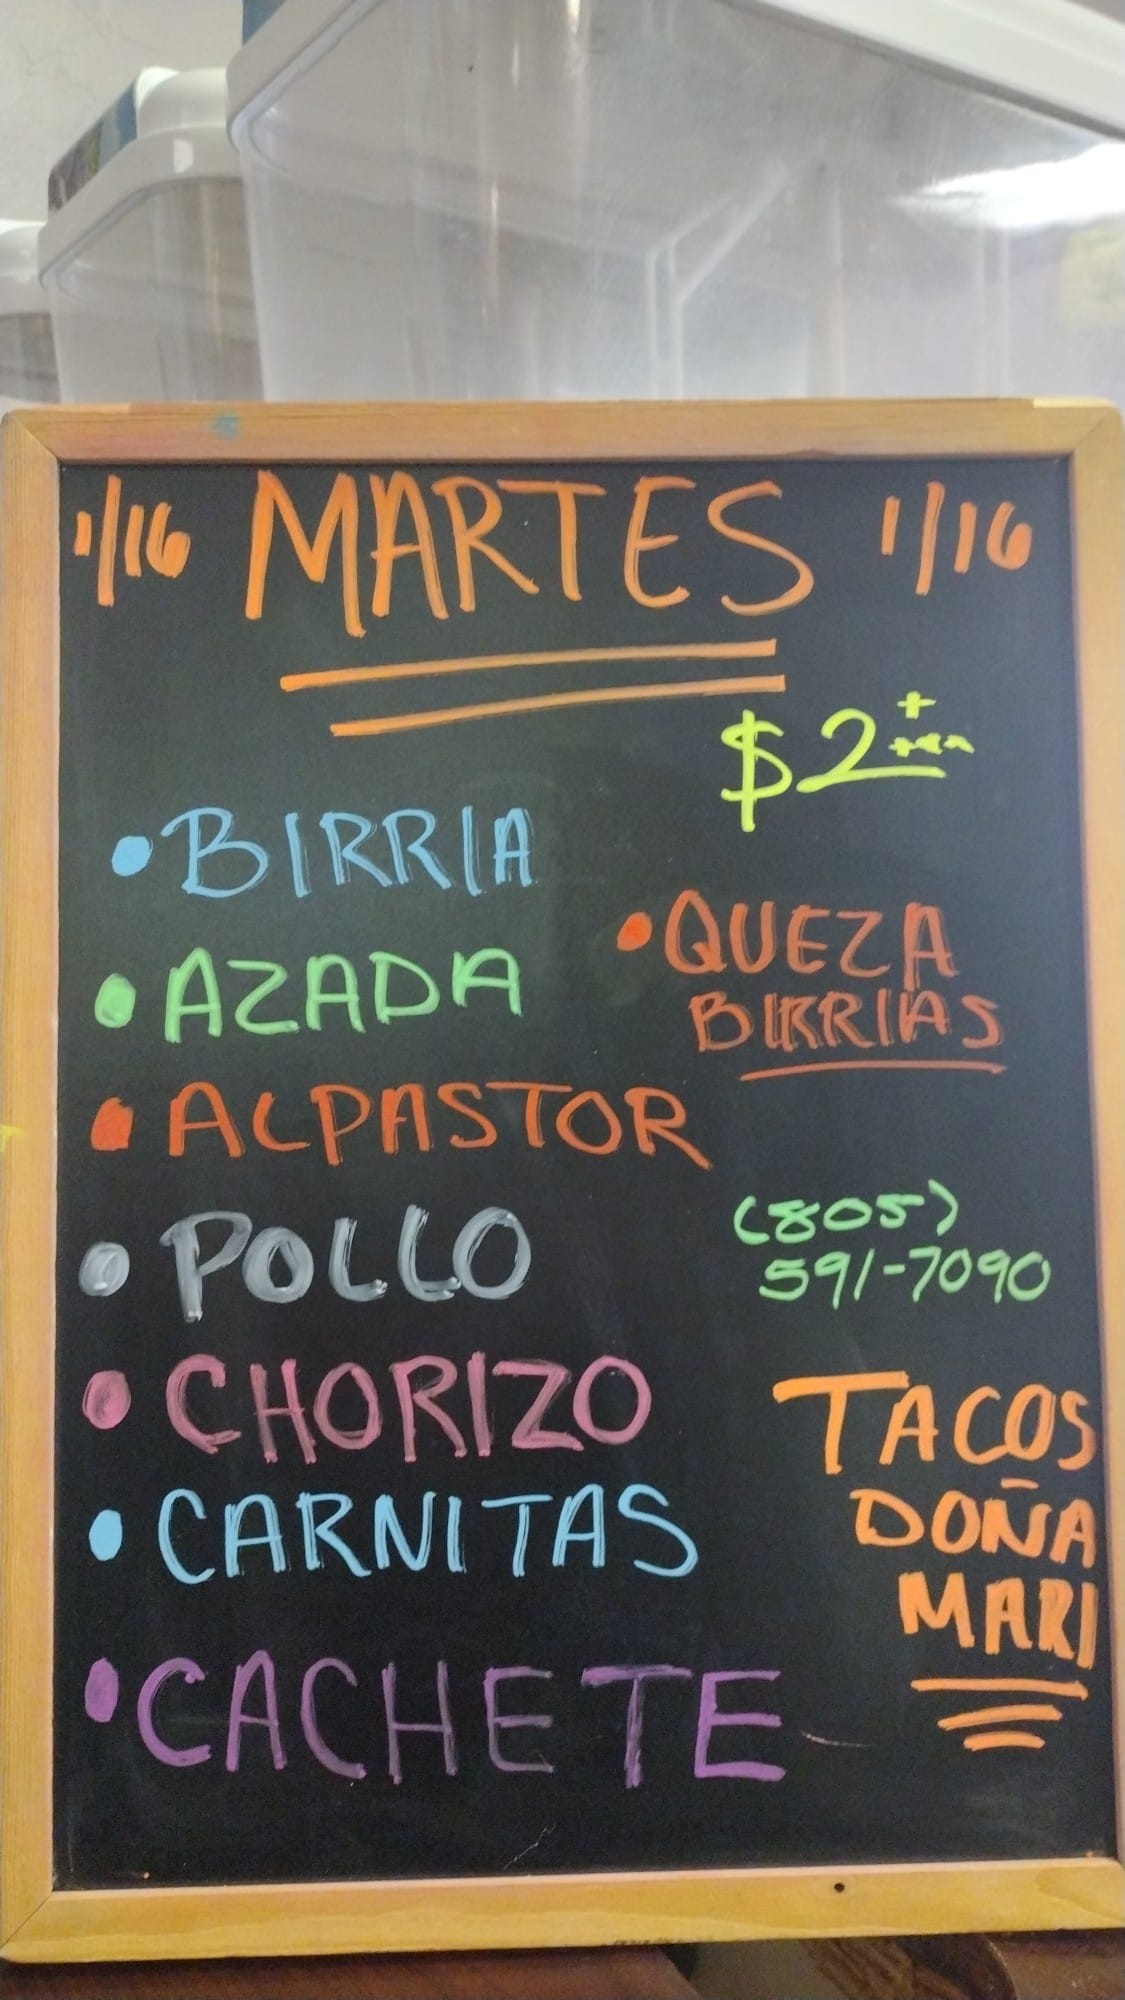 1/16 MARTES 1/16
$2+
• BIRRIA
• AZADA
• ALPASTOR
• POLLO
• CHORIZO
• CARNITAS
• CACHETE
• QUEZA
BIRRIAS
(805)
591-7090
TACOS
DOÑA
MARI